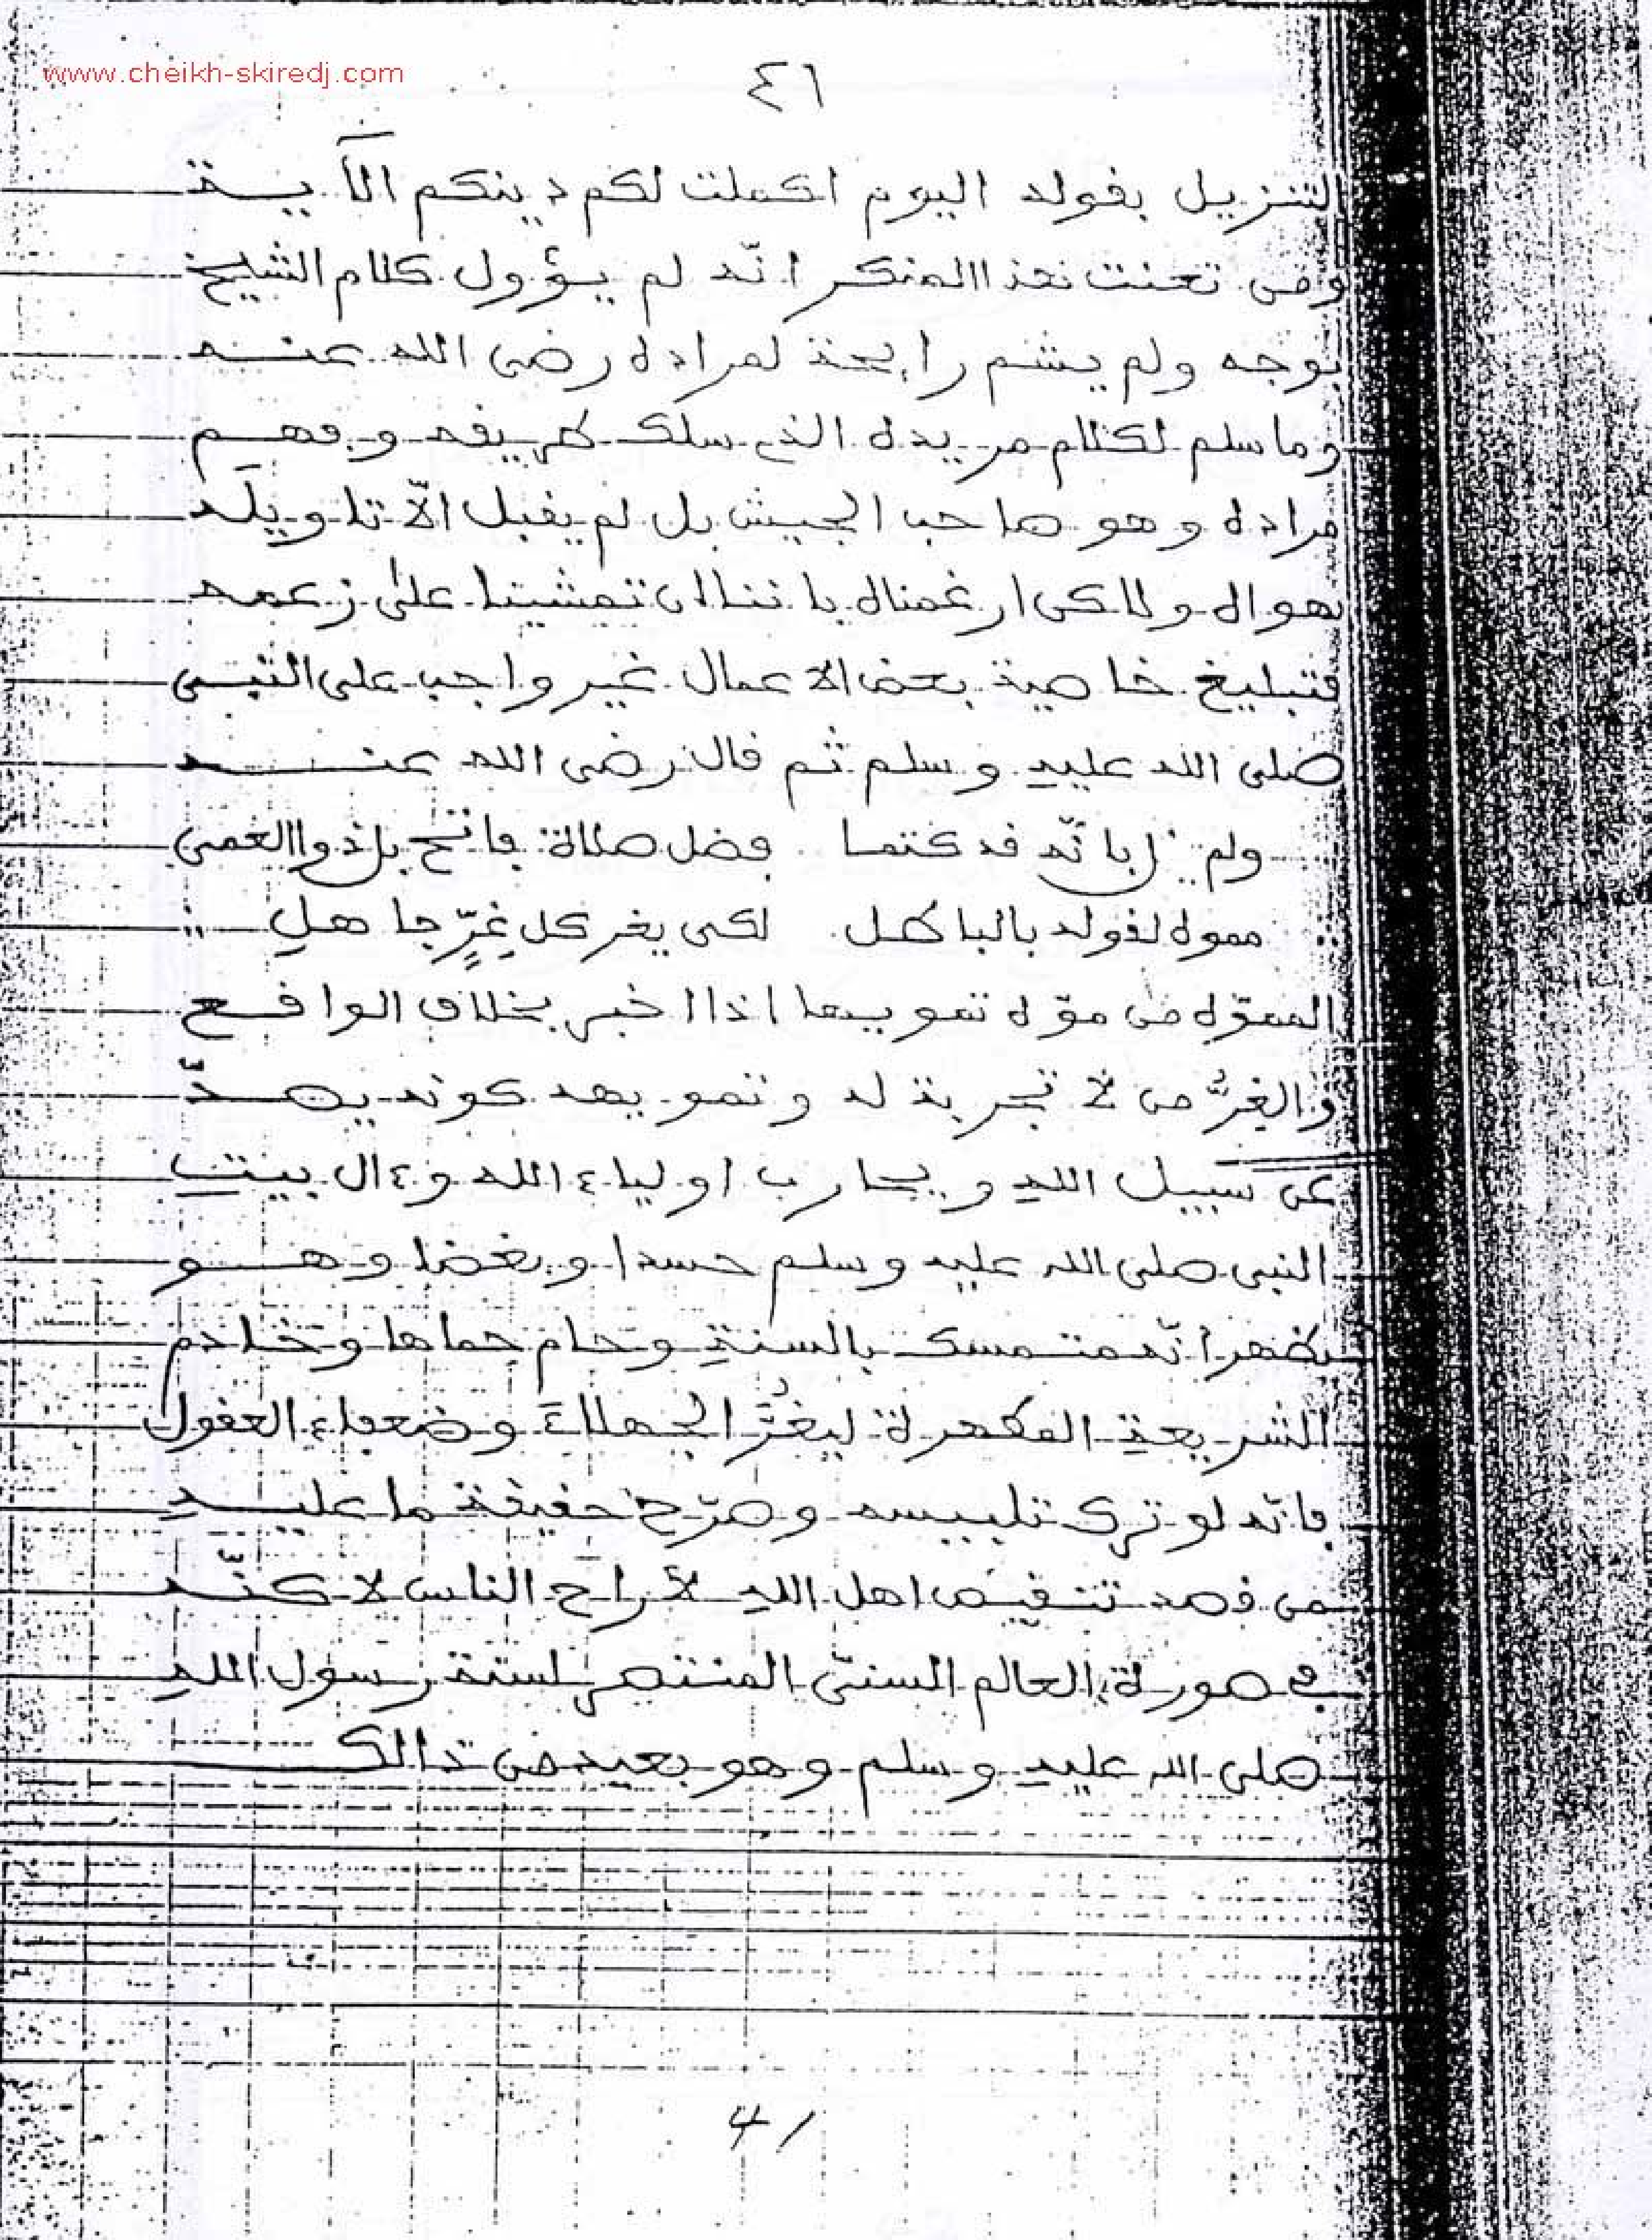 www.cheikh-skiredj.com
٤١
التنزيل بقوله اليوم اكملت لكم دينكم الآية
ومن تعنت هذا المنكر انّه لم يؤول كلام الشيخ
بوجه ولم يشم رايحة لمراده رضى الله عنه
وما سلم لكلام مريده الذى سلك طريقه وفهم
مراده وهو صاحب الجيش بل لم يقبل الّا تاويله
لهواه ولاكن ارغمناه باننا ان تمشينا على زعمه
فتبليغ خاصية بعض الاعمال غير واجب على النبى
صلى الله عليه وسلم ثم قال رضى الله عنه
ولم بانّه قد كتما فضل صلاة فاتح بل ذو العمى
مموه لقوله بالباطل لكى يغر كل غِرٍّ جاهل
المموّه من موّه تمويها اذا اخبر بخلاف الواقع
والغِرُّ من لا تجربة له وتمويهه كونه يصدّ
عن سبيل الله ويحارب اولياء الله وءال بيت
النبى صلى الله عليه وسلم حسدا وبغضا وهو
يظهر انّه متمسك بالسنة وحام حماها وخادم
الشريعة المطهرة ليغُرَّ الجهلاء وضعفاء العقول
فانّه لو ترك تلبيسه وصرّح حقيقة ما عليه
من قصد تنقيص اهل الله لأراح الناس لاكنّه
فى صورة العالم السنّى المنتصر لسنة رسول الله
صلى الله عليه وسلم وهو بعيد من ذالك
41